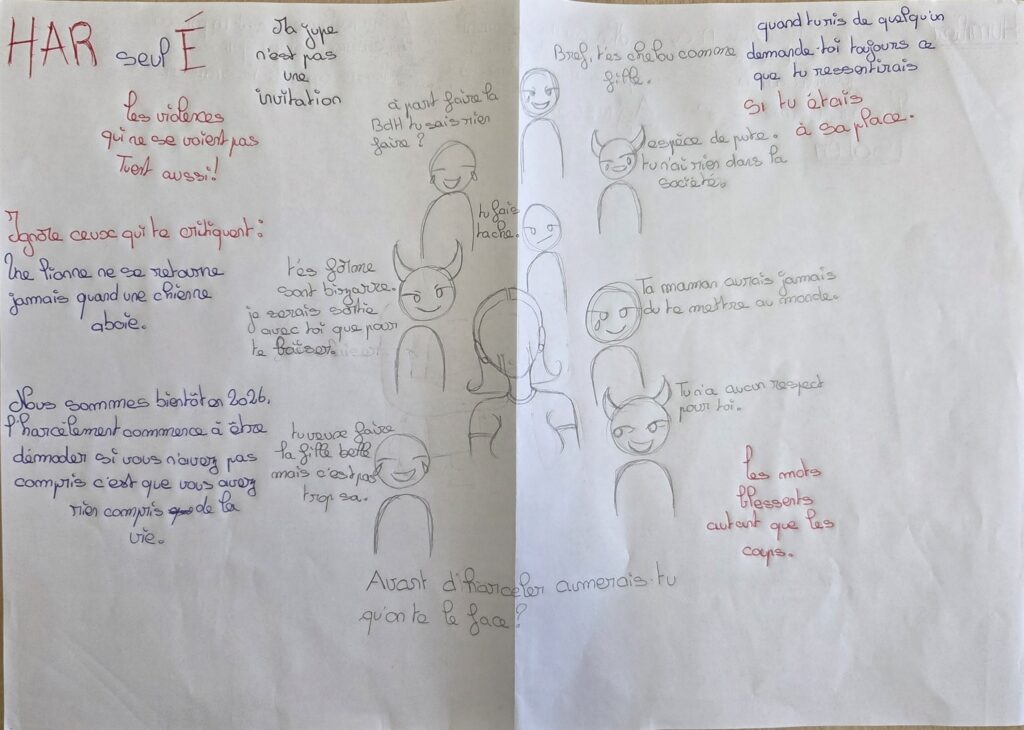 HAR seul É
Ma jupe
n'est pas
une
invitation
les violences
qui ne se voient pas
Tuent aussi!
Ignore ceux qui te critiquent:
Une lionne ne se retourne
jamais quand une chienne
aboie.
Nous sommes bientôt en 2026.
l'harcèlement commence à être
démoder si vous n'avez pas
compris c'est que vous avez
rien compris de la
vie.
à part faire la
BdH tu sais rien
faire?
t'es forme
sont bizzarre.
je serais sortie
avec toi que pour
te baiser.
tu veux faire
la fille belle
mais c'est pas
trop sa.
tu fais
tache.
Bref, t'es chelou comme
fille.
espèce de pute.
tu n'ai rien dans la
societe.
Ta maman aurais jamais
du te mettre au monde.
Tu n'a aucun respect
pour toi.
quand tu ris de quelqu'un
demande-toi toujours ce
que tu ressentirais
si tu étais
à sa place.
les mots
blessents
autant que les
coups.
Avant d'harceler aimerais-tu
qu'on te le face?